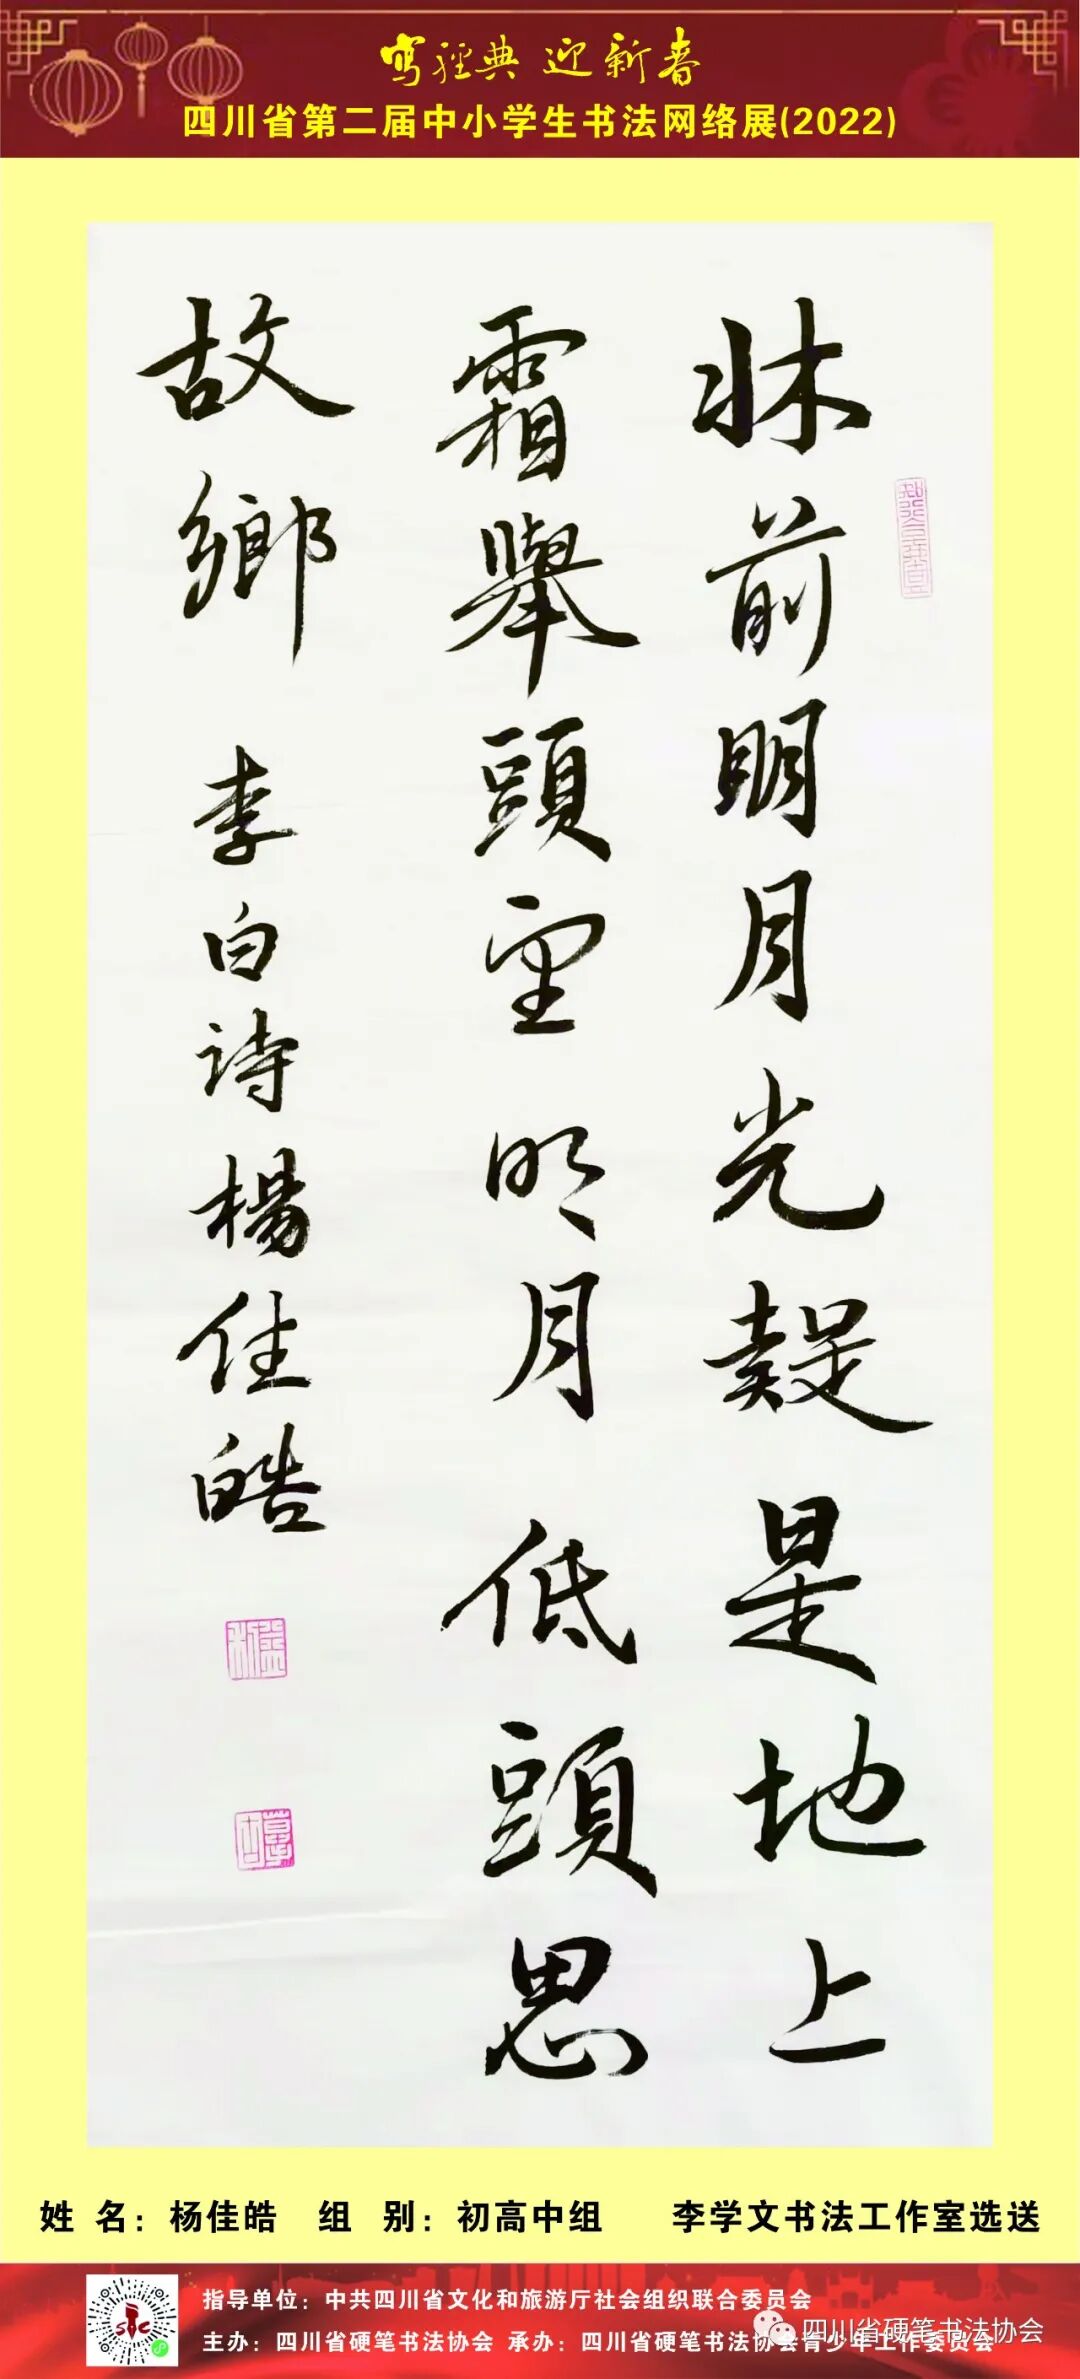 写經典 迎新春
四川省第二届中小学生书法网络展(2022)
牀前明月光疑是地上
霜舉頭望明月低頭思
故鄉 李白詩楊佳皓
姓 名：杨佳皓 组 别：初高中组 李学文书法工作室选送
指导单位：中共四川省文化和旅游厅社会组织联合委员会
主办：四川省硬笔书法协会 承办：四川省硬笔书法协会青少年工作委员会
四川省硬笔书法协会